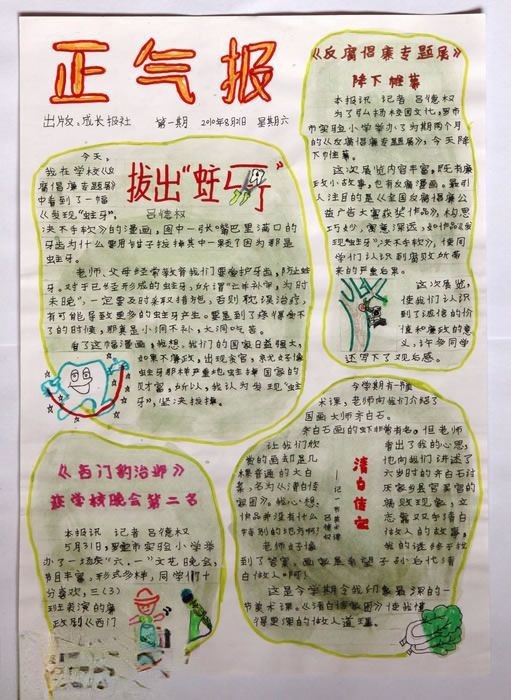 正气报
出版：成长报社 第一期 2010年8月21日 星期六
拔出“蛀牙”
吕德权
今天，
我在学校《反
腐倡廉专题展》
中看到了一幅
《发现“蛀牙”，
决不手软》的漫画，图中一张嘴巴里满口的
牙齿为什么要用钳子拔掉其中一颗？因为那是
蛀牙。
老师、父母经常教育我们要爱护牙齿，防止蛀
牙。对于已经形成的蛀牙，所谓“亡羊补牢，为时
未晚”，一定要及时采取措施，否则耽误治疗，
有可能导致更多的蛀牙产生。要是到了疼得受不
了的时候，那真是小洞不补，大洞吃苦。
看了这幅漫画，我想，我们的国家日益强大，
如果不廉政，出现贪官，就好像
蛀牙那样严重地蛀掉国家的
财富，所以，我认为发现“蛀
牙”，坚决拔掉。
《反腐倡廉专题展》
降下帷幕
本报讯 记者 吕德权
为了弘扬校园文化，罗市
市实验小学举办了为期两个月
的《反腐倡廉专题展》，今天降
下帷幕。
这次展览内容丰富，既有廉
政小故事，也有反腐漫画。最引
人注目的是《全国反腐倡廉公
益广告大赛获奖作品》，构思
巧妙，寓意深远，如作品《发
现“蛀牙”，决不手软》，使同
学们认识到腐败所带
来的严重后果。
这次展览，
使我们认识到
了诚信的价
值和廉政的意
义，许多同学
还写下了观后感。
《西门豹治邺》
获学校晚会第二名
本报讯 记者 吕德权
5月31日，罗市实验小学举
办了一场庆“六·一”文艺晚会，
节目丰富，形式多样，同学们十
分喜欢，三(3)
班表演的廉
政剧《西门
清白传家
——记一节美术课
吕德权
今学期有一节美
术课，老师向我们介绍了
国画大师齐白石。
齐白石画的虾非常有名。但老师
让我们欣
赏的画却是几
棵普通的大白
菜，名为《清白传
家图》。我心想，
作品并没有什么
特别的地方啊！
老师好像
看出了我的心思，
他向我们讲述了
六岁时的齐白石讨
厌家乡县官黑官的
腐败现象，立
志要以于清白
做人的故事，
我的谜终于找
到了答案，画家是希望子孙后代清
白做人啊！
这是今学期令我印象最深的一
节美术课。《清白传家图》使我懂
得更深的做人道理。